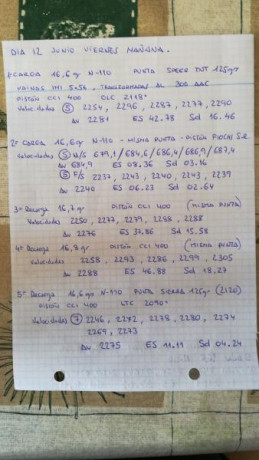 DIA 12 JUNIO VIERNES MAÑANA.
RECARGA 16,6 gr N-110 PUNTA SPEER TNT 125grs
VAINAS 5x56. TRANSFORMADAS AL 300 AAC
PISTÓN CCI 400 OLC 2.118"
Velocidades (5) 2254, 2296, 2283, 2277, 2290
AV 2281 ES 42.78 Sd 16.46
2º CARGA 16,6 gr N-110 - MISMA PUNTA - PISTÓN FIOCHI S.R
Velocidades (5) M/S 679,1 / 684,6 / 686,4 / 686,9 / 687,4
AV 684,9 ES 08.36 Sd 03.16
(5) F/S 2237, 2243, 2240, 2243, 2239
AV 2240 ES 06.23 Sd 02.64
3º Recarga 16,7 gr PISTÓN CCI 400 (MISMA PUNTA)
Velocidades 2250, 2277, 2279, 2288, 2288
AV 2276 ES 37.86 Sd 15.58
4ª Recarga 16,8 gr PISTÓN CCI 400 (MISMA PUNTA)
Velocidades 2258, 2293, 2286, 2299, 2305
AV 2288 ES 46.88 Sd 18.27
5º Recarga 16,6 grs N-110 PUNTA SIERRA 125gr (2120)
PISTÓN CCI 400 LTC 2090"
Velocidades (7) 2246, 2272, 2278, 2280, 2274
2269, 2273
AV 2275 ES 11.11 Sd 04.24